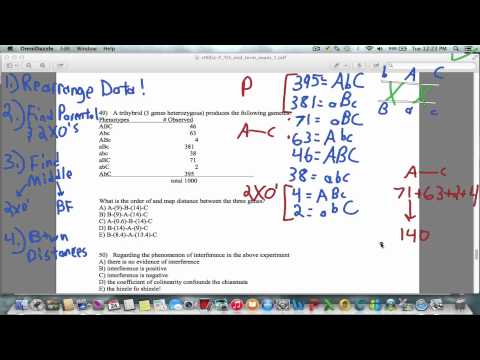 OmniDazzle
Tue 12:23 PM
1.) Rearrange Data!
2.) Find Parental
& 2XO's
3.) Find
Middle
2XO' BF
4.) Btwn
Distances
49) A trihybrid (3 genes heterozygous) produces the following gametes:
Phenotypes # Observed
ABC 46
Abc 63
ABc 4
aBc 381
abc 38
aBC 71
abC 2
AbC 395
total 1000
What is the order of and map distance between the three genes?
A) A-(9)-B-(14)-C
B) B-(9)-A-(14)-C
C) A-(0.6)-B-(14)-C
D) B-(14)-A-(9)-C
E) B-(8.4)-A-(13.4)-C
50) Regarding the phenomenon of interference in the above experiment
A) there is no evidence of interference
B) interference is positive
C) interference is negative
D) the coefficient of colinearity confounds the chiasmata
E) the hizzle fo shizzle!
P
395 = AbC
381 = aBc
71 = aBC
A-C
63 = Abc
46 = ABC
38 = abc
2XO'
4 = ABc
2 = abC
b A C
B a c
A-C
71+63+2+4
140